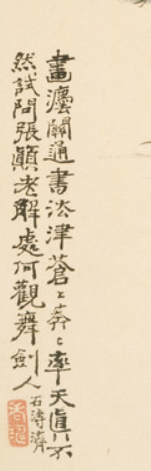 畫法關通書法津蒼〻莽〻率天真不
然試問張顛老解處何觀舞劍人
石濤濟